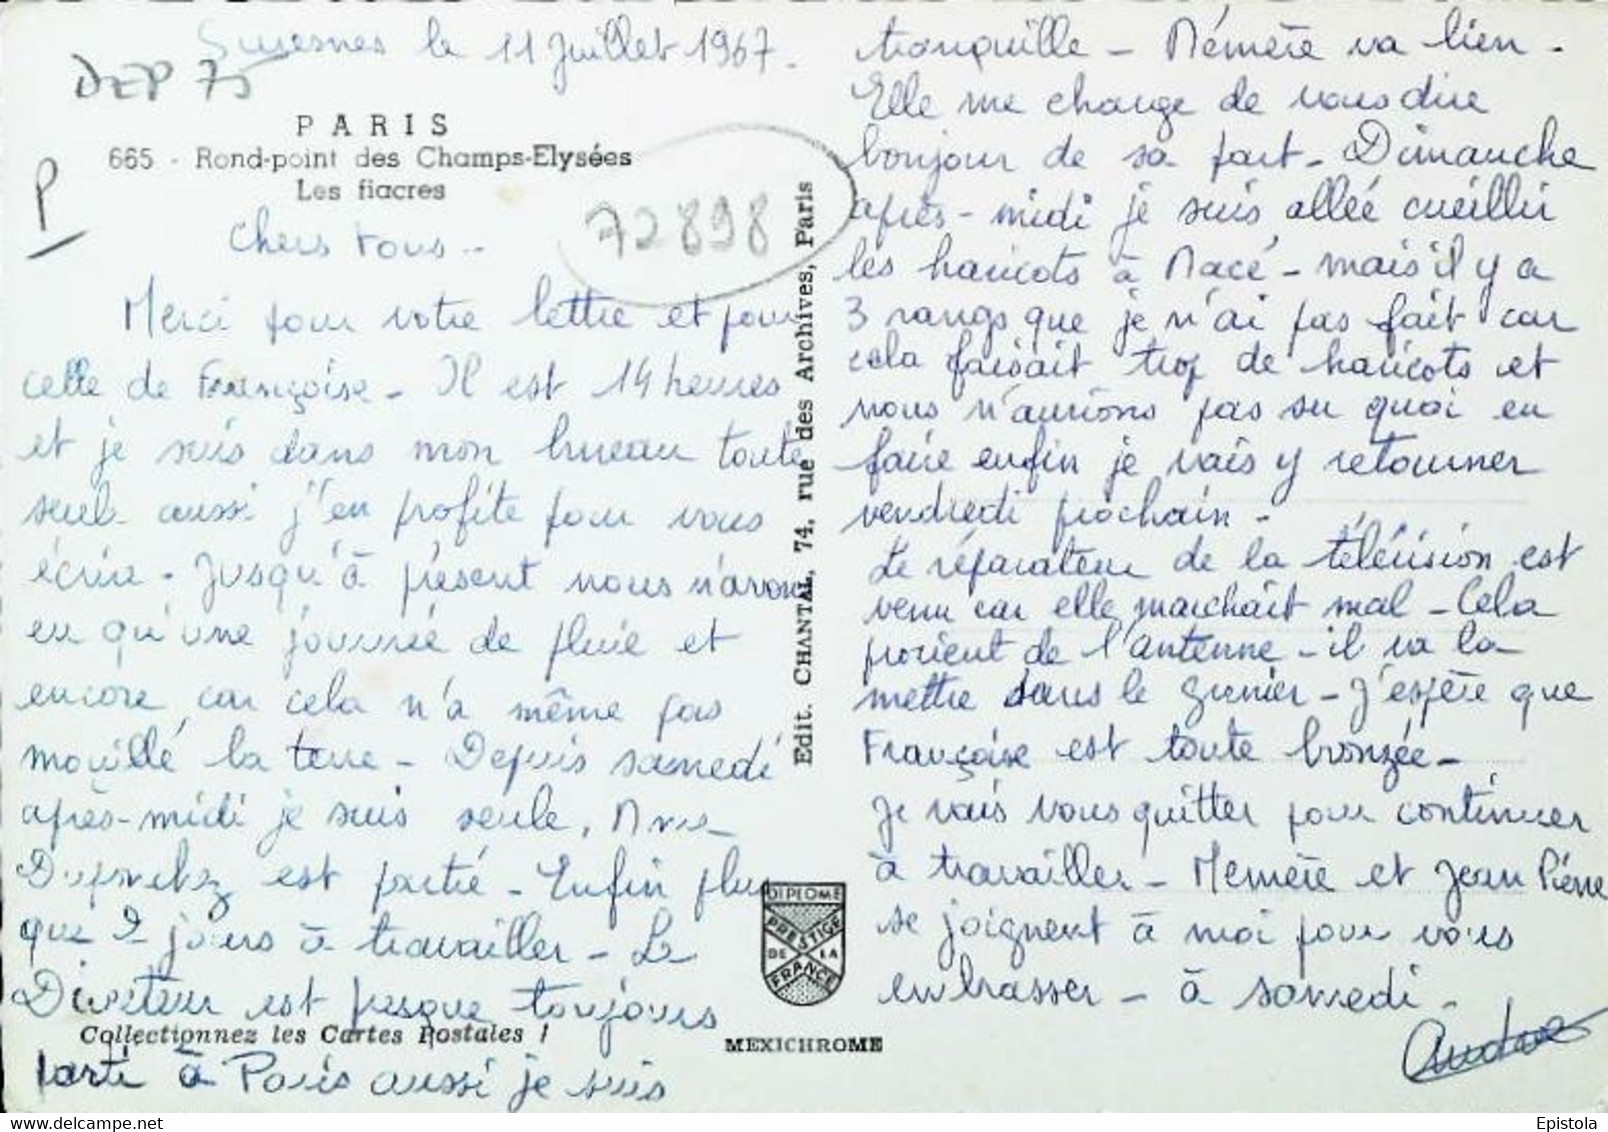 Suresnes le 11 Juillet 1967.
DEP 75
PARIS
665 - Rond-point des Champs-Elysées
Les fiacres
P
72898
Chers tous..
Merci pour votre lettre et pour
celle de Françoise - Il est 14 heures
et je suis dans mon bureau toute
seule aussi j'en profite pour vous
écrire - Jusqu'à présent nous n'avons
eu qu'une journée de pluie et
encore car cela n'a même pas
mouillé la terre - Depuis samedi
après-midi je suis seule,
est partie - Enfin plus
que 2 jours à travailler - Le
Directeur est presque toujours
Collectionnez les Cartes Postales !
parti à Paris aussi je suis
Edit. CHANTAL, 74, rue des Archives, Paris
DIPLOME
PRESTIGE
DE LA
FRANCE
MEXICHROME
tranquille - Mémère va bien -
Elle me charge de vous dire
bonjour de sa part - Dimanche
après-midi je suis allée cueillir
les haricots à Macé - mais il y a
3 rangs que je n'ai pas fait car
cela faisait trop de haricots et
nous n'aurions pas su quoi en
faire enfin je vais y retourner
vendredi prochain -
Le réparateur de la télévision est
venu car elle marchait mal - Cela
provient de l'antenne - il va la
mettre dans le grenier - J'espère que
Françoise est toute bronzée -
Je vais vous quitter pour continuer
à travailler - Memère et Jean Pierre
se joignent à moi pour vous
embrasser - à samedi -
Epistola